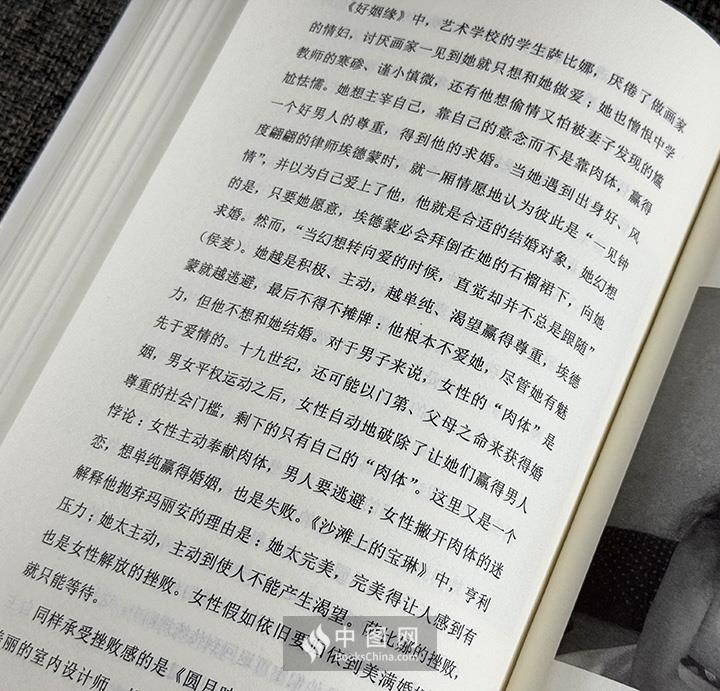 《好姻缘》中，艺术学校的学生萨比娜，厌倦了做画家
的情妇，讨厌画家一见到她就只想和她做爱；她也憎恨中学
教师的寒碜、谨小慎微，还有他想偷情又怕被妻子发现的尴
尬怯懦。她想主宰自己，靠自己的意念而不是靠肉体，赢得
一个好男人的尊重，得到他的求婚。当她遇到出身好、风
度翩翩的律师埃德蒙时，就一厢情愿地认为彼此是“一见钟
情”，并以为自己爱上了他，他就是合适的结婚对象，她幻想
的是，只要她愿意，埃德蒙必会拜倒在她的石榴裙下，向她
求婚。然而，“当幻想转向爱的时候，直觉却并不总是跟随”
（侯麦）。她越是积极、主动，越单纯、渴望赢得尊重，埃德
蒙就越逃避，最后不得不摊牌：他根本不爱她，尽管她有魅
力，但他不想和她结婚。对于男子来说，女性的“肉体”是
先于爱情的。十九世纪，还可能以门第、父母之命来获得婚
姻，男女平权运动之后，女性自动地破除了让她们赢得男人
尊重的社会门槛，剩下的只有自己的“肉体”。这里又是一个
悖论；女性主动奉献肉体，男人要逃避；女性撇开肉体的迷
恋，想单纯赢得婚姻，也是失败。《沙滩上的宝琳》中，亨利
解释他抛弃玛丽安的理由是：她太完美，完美得让人感到有
压力；她太主动，主动到使人不能产生渴望。萨比娜的挫败，
也是女性解放的挫败。女性假如依旧要 到美满婚
就只能等待。
同样承受挫败感的是《圆月
丽的室内设计师
中图网
BooksChina.com